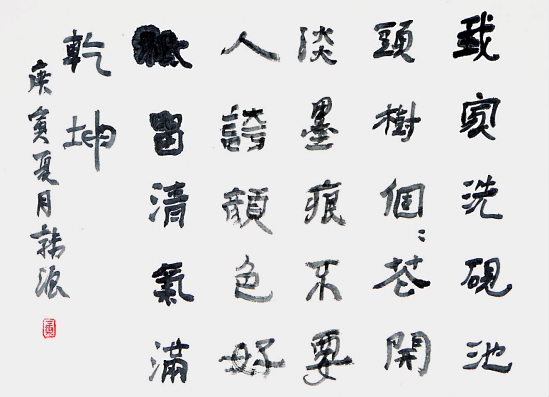 我家洗硯池
頭樹個々花開
淡墨痕不要
人誇顔色好
祗留清氣滿
乾坤
庚寅夏月源